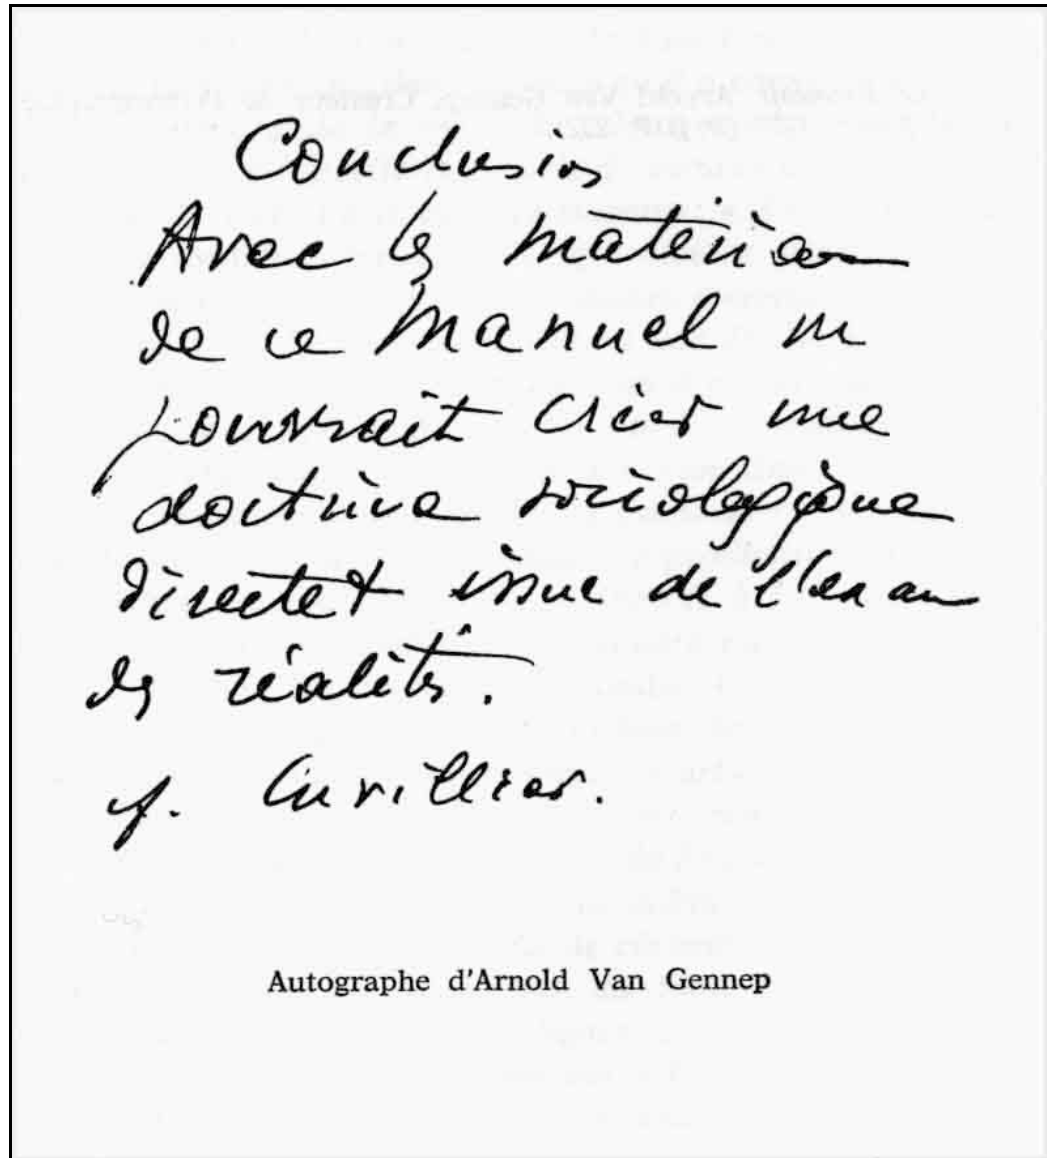 Conclusion
Avec les matériaux
de ce Manuel on
pourrait créer une
doctrine sociologique
directet issue de l'examen
des réalités.
cf. Cuvillier.
Autographe d'Arnold Van Gennep